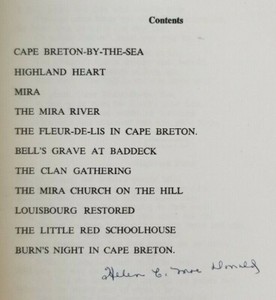 Contents
CAPE BRETON-BY-THE-SEA
HIGHLAND HEART
MIRA
THE MIRA RIVER
THE FLEUR-DE-LIS IN CAPE BRETON.
BELL'S GRAVE AT BADDECK
THE CLAN GATHERING
THE MIRA CHURCH ON THE HILL
LOUISBOURG RESTORED
THE LITTLE RED SCHOOLHOUSE
BURN'S NIGHT IN CAPE BRETON.
Helen C. Mac Donald